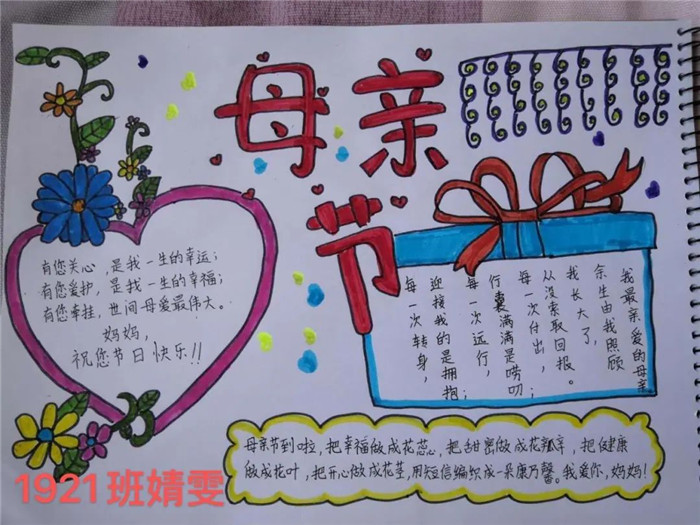 母亲
节
有您关心,是我一生的幸运;
有您爱护,是我一生的幸福;
有您牵挂,世间母爱最伟大。
妈妈,
祝您节日快乐!!
我最亲爱的母亲
余生由我照顾
我长大了,
从没索取回报。
每一次付出,
行囊满满是唠叨;
每一次远行,
迎接我的是拥抱;
每一次转身,
母亲节到啦,把幸福做成花蕊,把甜蜜做成花瓣,把健康
做成花叶,把开心做成花茎,用短信编织成一朵康乃馨。我爱你,妈妈!
1921班婧雯